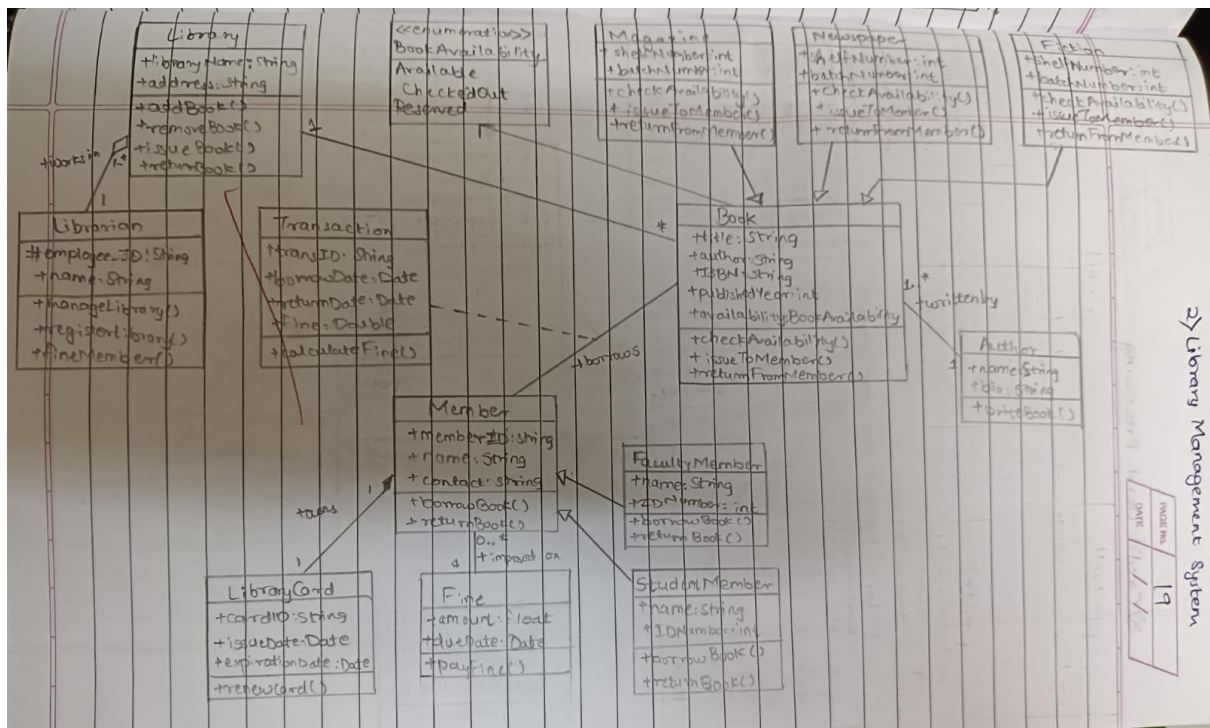 2) Library Management System
PAGE No. 19
DATE
Library
+libraryName: String
+address: String
+addBook()
+removeBook()
+issueBook()
+returnBook()
<<enumeration>>
BookAvailability
Available
CheckedOut
Reserved
Magazine
+shelfNumber: int
+batchNumber: int
+checkAvailability()
+issueToMember()
+returnFromMember()
Newspaper
+shelfNumber: int
+batchNumber: int
+checkAvailability()
+issueToMember()
+returnFromMember()
Fiction
+shelfNumber: int
+batchNumber: int
+checkAvailability()
+issueToMember()
+returnFromMember()
+worksin
1..*
1
1
*
Librarian
#employee_ID: String
+name: String
+manageLibrary()
+registerLibrary()
+fineMember()
Transaction
+transID: String
+borrowDate: Date
+returnDate: Date
+fine: Double
+calculateFine()
Book
+title: String
+author: String
+ISBN: String
+publishedYear: int
+availability: BookAvailability
+checkAvailability()
+issueToMember()
+returnFromMember()
1..*
+writtenby
1
Author
+name: String
+bio: String
+writeBook()
+borrows
Member
+memberID: String
+name: String
+contact: String
+borrowBook()
+returnBook()
FacultyMember
+name: String
+IDNumber: int
+borrowBook()
+returnBook()
1
1
0..*
+imposed on
1
LibraryCard
+cardID: String
+issueDate: Date
+expirationDate: Date
+renewCard()
Fine
+amount: Float
+dueDate: Date
+payFine()
StudentMember
+name: String
+IDNumber: int
+borrowBook()
+returnBook()